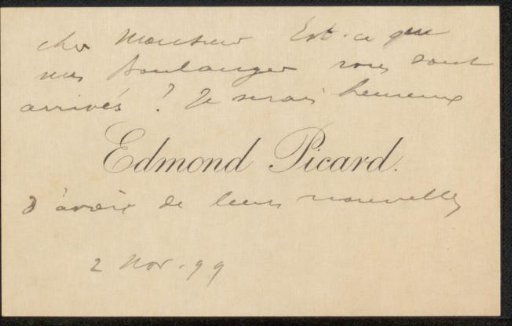 cher Monsieur Est-ce que
mes Boulanger vous sont
arrivés ? Je serais heureux
Edmond Picard.
d'avoir de leurs nouvelles
2 Nov. 99